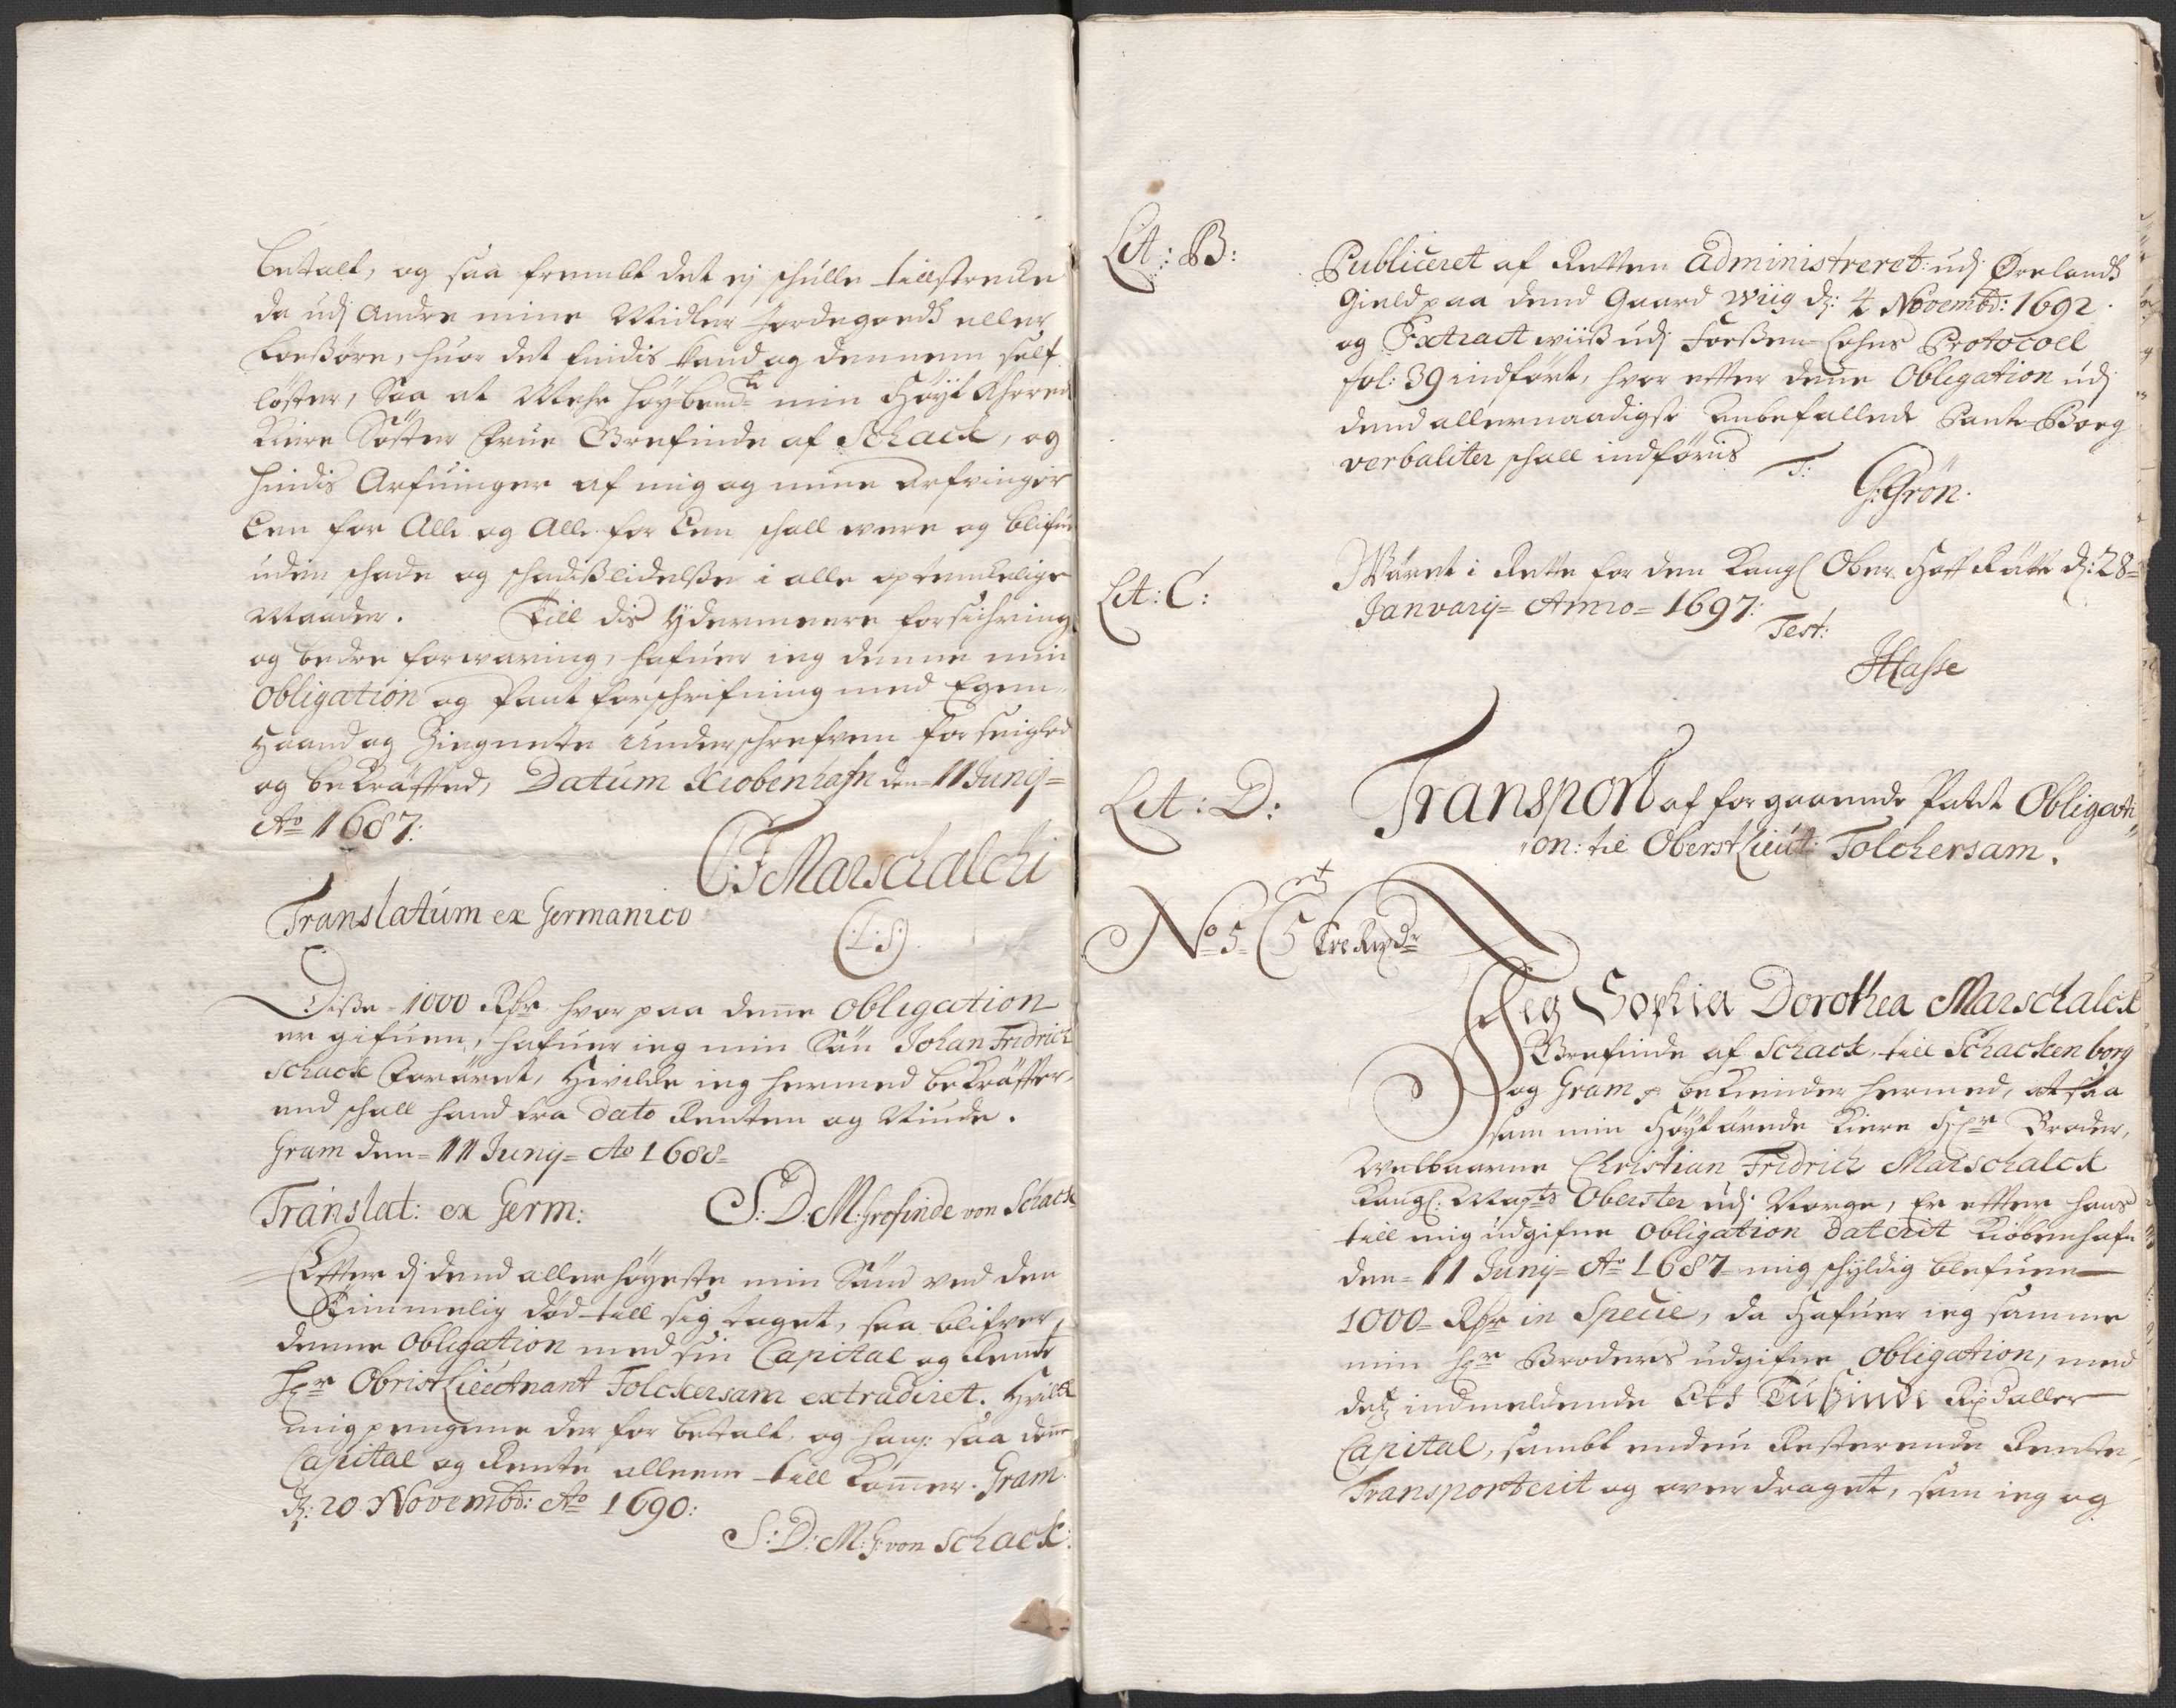 betalt, og saa frembt det ej schulle tillstrecke
da udj Andre mine Midler Jordegoedß eller
Loeßøre, huor det findis kand og dennem self
løster, Saa at Mehr høybemte min Høyt Ährede
Kiere Søster Frue Grefinde af Schack, og
hindis Arfuinger af mig og mine arfvinger
Een for Alle og Alle for Een schall were og blifue
uden schade og schadeßlidelße i alle optenckelige
Maader. Till dis ydermeere forsichring
og bedre forwaring, hafuer ieg denne min
Obligation og Pant forschrifning med Egen
Haand og Zignete Underschrefven forseigled
og bekräffted, Datum Kiobenhafn den 11 Junij
Ao 1687:
C:F Marschalch
Translatum ex Germanico
(:L:S:)
Diße 1000 Rdr hvorpaa dene obligation
er gifuen, hafuer ieg min Sön Johan Fridrich
Schack foräret, Hvilke ieg hermed bekräffter,
und schall hand fra dato Renten og Niude.
Gram den 11 Junij Ao 1688
Translat: ex Germ: S:D:M: Grefinde von Schack
Efter dj dend allerhøyeste min Sönn ved den
Timmelig død till sig taget, saa blifver
denne obligation med sin Capital og Rente
Hr Obrist Lieutnant Folckersam extradiret. Hvilck
mig pengene der for betalt, og ham saa denne
Capital og Rente alleene till Kommer. Gram
d: 20 Novembr: Ao 1690:
S:D:M:G: von Schack:
Lit: B:
Publiceret af Retten administreret udj Ørelandß
Gield paa dend Gaard Wiig d: 4 Novembr: 1692.
og Extract wiiß udj Foeßen Lehns Protocoll
fol: 39 indført, hvor effter dene Obligation udj
dend allernaadigst Anbefallede Pante Boeg
verbaliter schall indføris
T:
G: Grön.
Lit: C:
Wäret i Rette for den Kongl Ober Hoff Rätt d: 28
Januarij Anno 1697:
Test:
JHasse
Lit: D:
Transport af forgaaende Pandt Obligati
on: til Oberst Lieut: Folchersam.
No 5 5 rt
Ieg Sophia Dorothea Marschalck
Grefinde af Schack, till Schackenborg
og Gram, bekiender hermed, at saa
som min Høytärede Kiere Hr Broder,
Welbaarne Christian Fridrich Marschalck
Kongl: Mayts Oberster udj Norge, Er effter hans
till mig udgifne obligation daterit Kiøbenhafn
den 11 Junij Ao 1687 mig schyldig blefuen
1000 Rdr in Specie, da Hafuer ieg samme
min Hr Broders udgifne Obligation, med
detz indmeldende Ett Tußinde Rixdaller
Capital, sambt enden Resterende Rente,
Transporterit og over draget, som ieg og